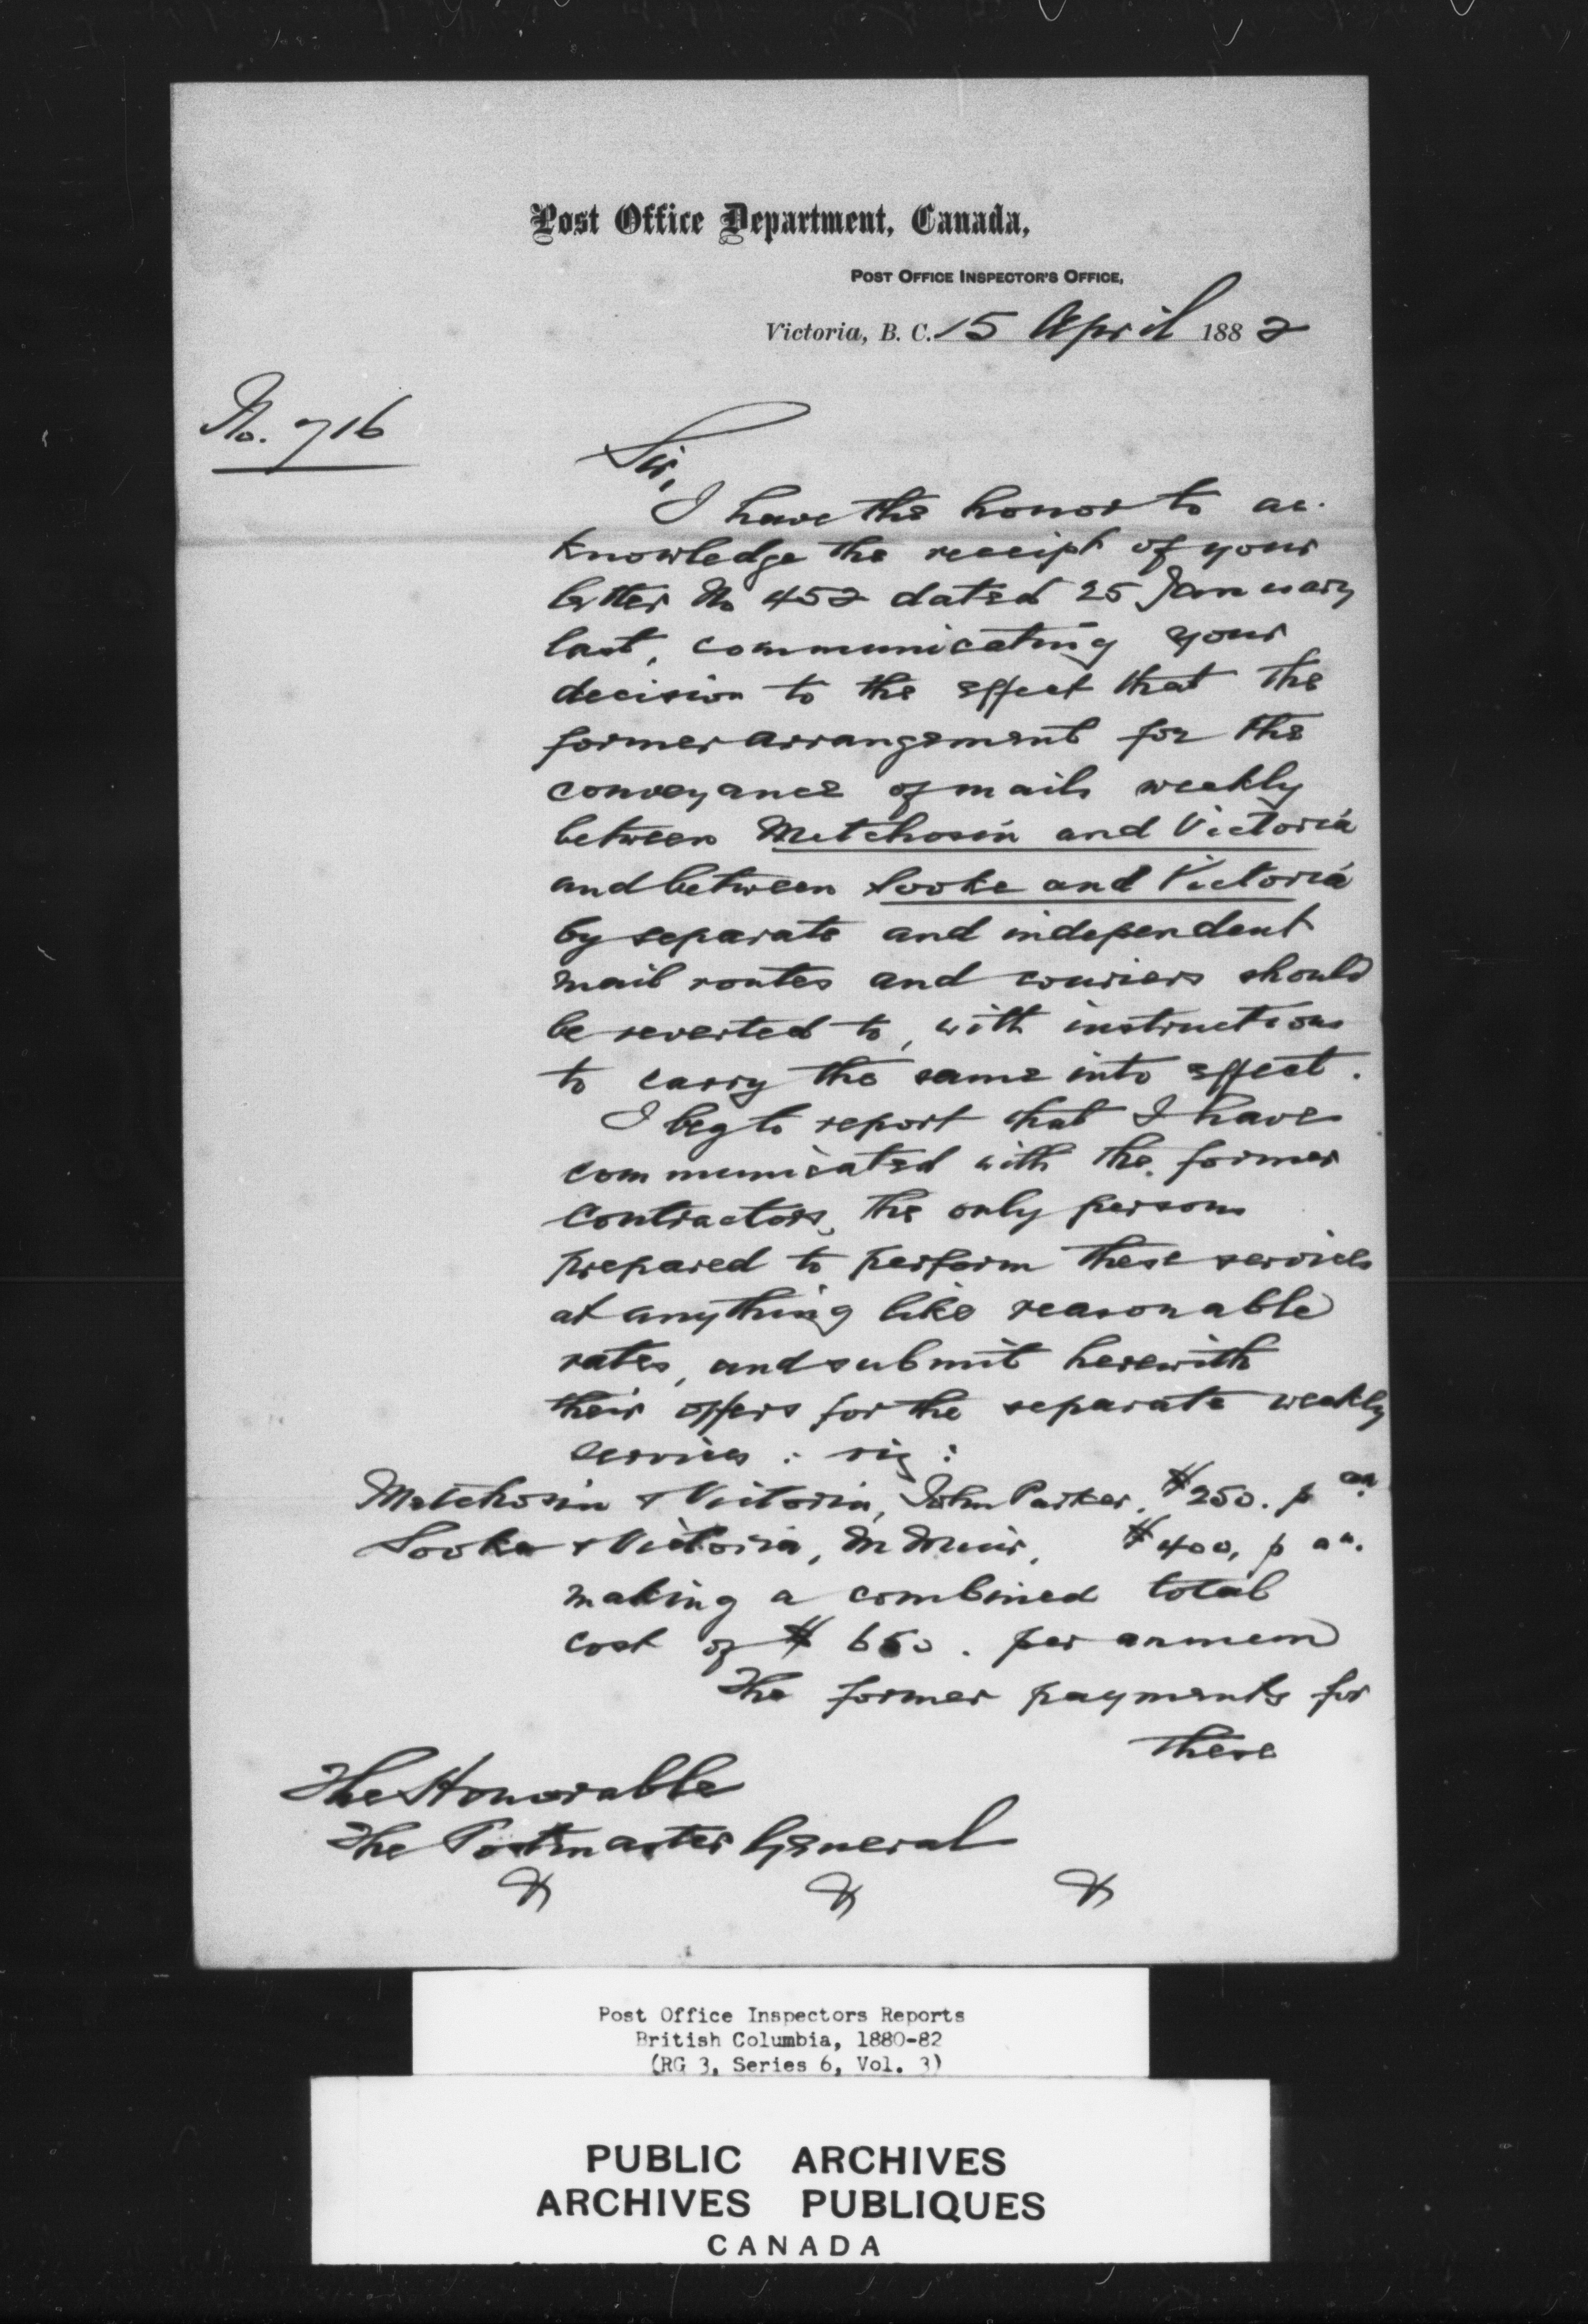 Post Office Department, Canada,
POST OFFICE INSPECTOR'S OFFICE,
Victoria, B. C. 15 April 1882
No. 716
Sir,
I have the honor to ac-
knowledge the receipt of your
letter No 452 dated 25 January
last, communicating your
decision to the effect that the
former arrangement for the
conveyance of mails weekly
between Metchosin and Victoria
and between Sooke and Victoria
by separate and independent
mail routes and couriers should
be reverted to, with instructions
to carry the same into effect.
I beg to report that I have
communicated with the former
contractors, the only persons
prepared to perform these services
at anything like reasonable
rates, and submit herewith
their offers for the separate weekly
services : viz :
Metchosin & Victoria, John Parker, $250. p an.
Sooke & Victoria, M Muir, $400, p an.
making a combined total
cost of $650. per annum
The former payments for
these
The Honorable
The Postmaster General
& & &
Post Office Inspectors Reports
British Columbia, 1880-82
(RG 3, Series 6, Vol. 3)
PUBLIC ARCHIVES
ARCHIVES PUBLIQUES
CANADA